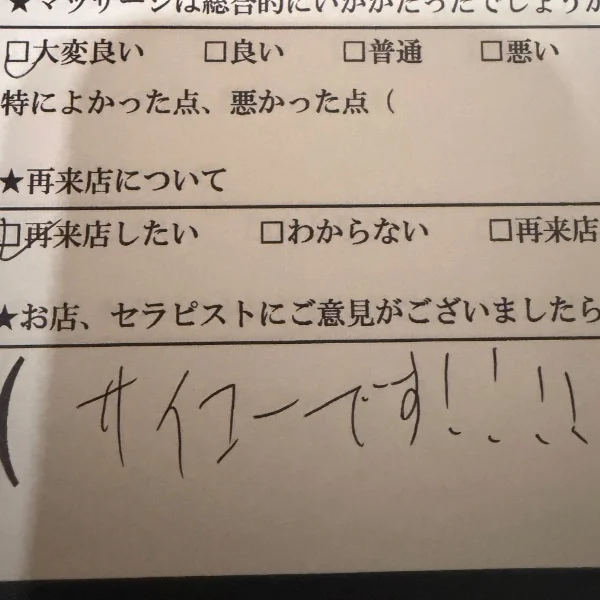 ★マッサージは総合的にいかがだったでしょうか
□大変良い □良い □普通 □悪い
特によかった点、悪かった点（
★再来店について
□再来店したい □わからない □再来店
★お店、セラピストにご意見がございましたら
( サイコーです!!!!